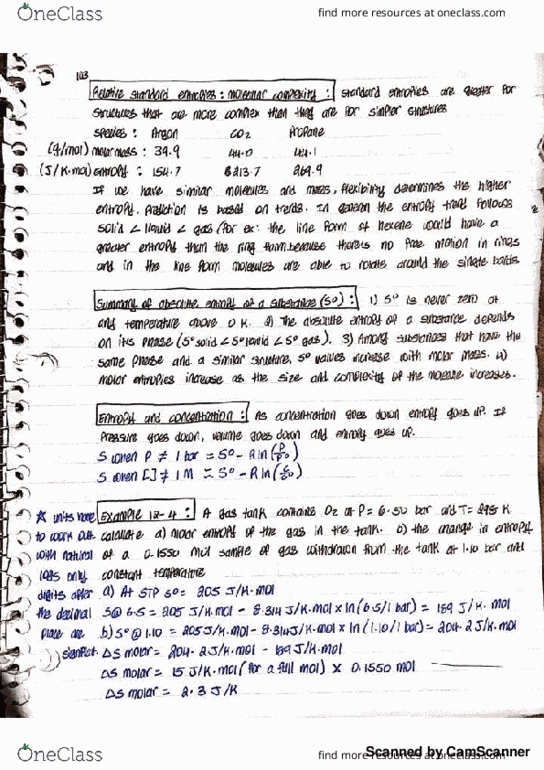 OneClass
find more resources at oneclass.com
103
Relative standard entropies: molecular complexity: standard entropies are greater for
structures that are more complex than they are for simpler structures
species: Argon CO2 Propane
(g/mol) molar mass: 39.9 44.0 44.1
(J/K.mol) entropy: 154.7 213.7 269.9
If we have similar molecules and mass, flexibility determines the higher
entropy. Prediction is based on trends. In general the entropy trend follows
solid < liquid < gas (for ex: the line form of hexene would have a
greater entropy than the ring form because there is no free motion in rings
and in the line form molecules are able to rotate around the single bonds
Summary of absolute entropy of a substance (S°): 1) S° is never zero at
any temperature above 0 K. 2) The absolute entropy of a substance depends
on its phase (S° solid < S° liquid < S° gas). 3) Among substances that have the
same phase and a similar structure, S° values increase with molar mass. 4)
molar entropies increase as the size and complexity of the molecule increases.
Entropy and concentration: As concentration goes down entropy goes up. If
pressure goes down, volume goes down and entropy goes up.
S when P ≠ 1 bar = S° - R ln (P/P°)
S when [ ] ≠ 1 M = S° - R ln (C/C°)
☆ units have Example 12-4: A gas tank contains O2 at P = 6.50 bar and T = 298 K
to work out calculate a) molar entropy of the gas in the tank. b) the change in entropy
with natural of a 0.1550 mol sample of gas withdrawn from the tank at 1.10 bar and
logs only constant temperature
digits after a) At STP S° = 205 J/K.mol
the decimal S@ 6.5 = 205 J/K.mol - 8.314 J/K.mol x ln (6.5/1 bar) = 189 J/K.mol
place are b) S° @ 1.10 = 205 J/K.mol - 8.314 J/K.mol x ln (1.10/1 bar) = 204.2 J/K.mol
signficant ΔS molar = 204.2 J/K.mol - 189 J/K.mol
ΔS molar = 15 J/K.mol (for a full mol) x 0.1550 mol
ΔS molar = 2.3 J/K
OneClass
find more resources at oneclass.com
Scanned by CamScanner